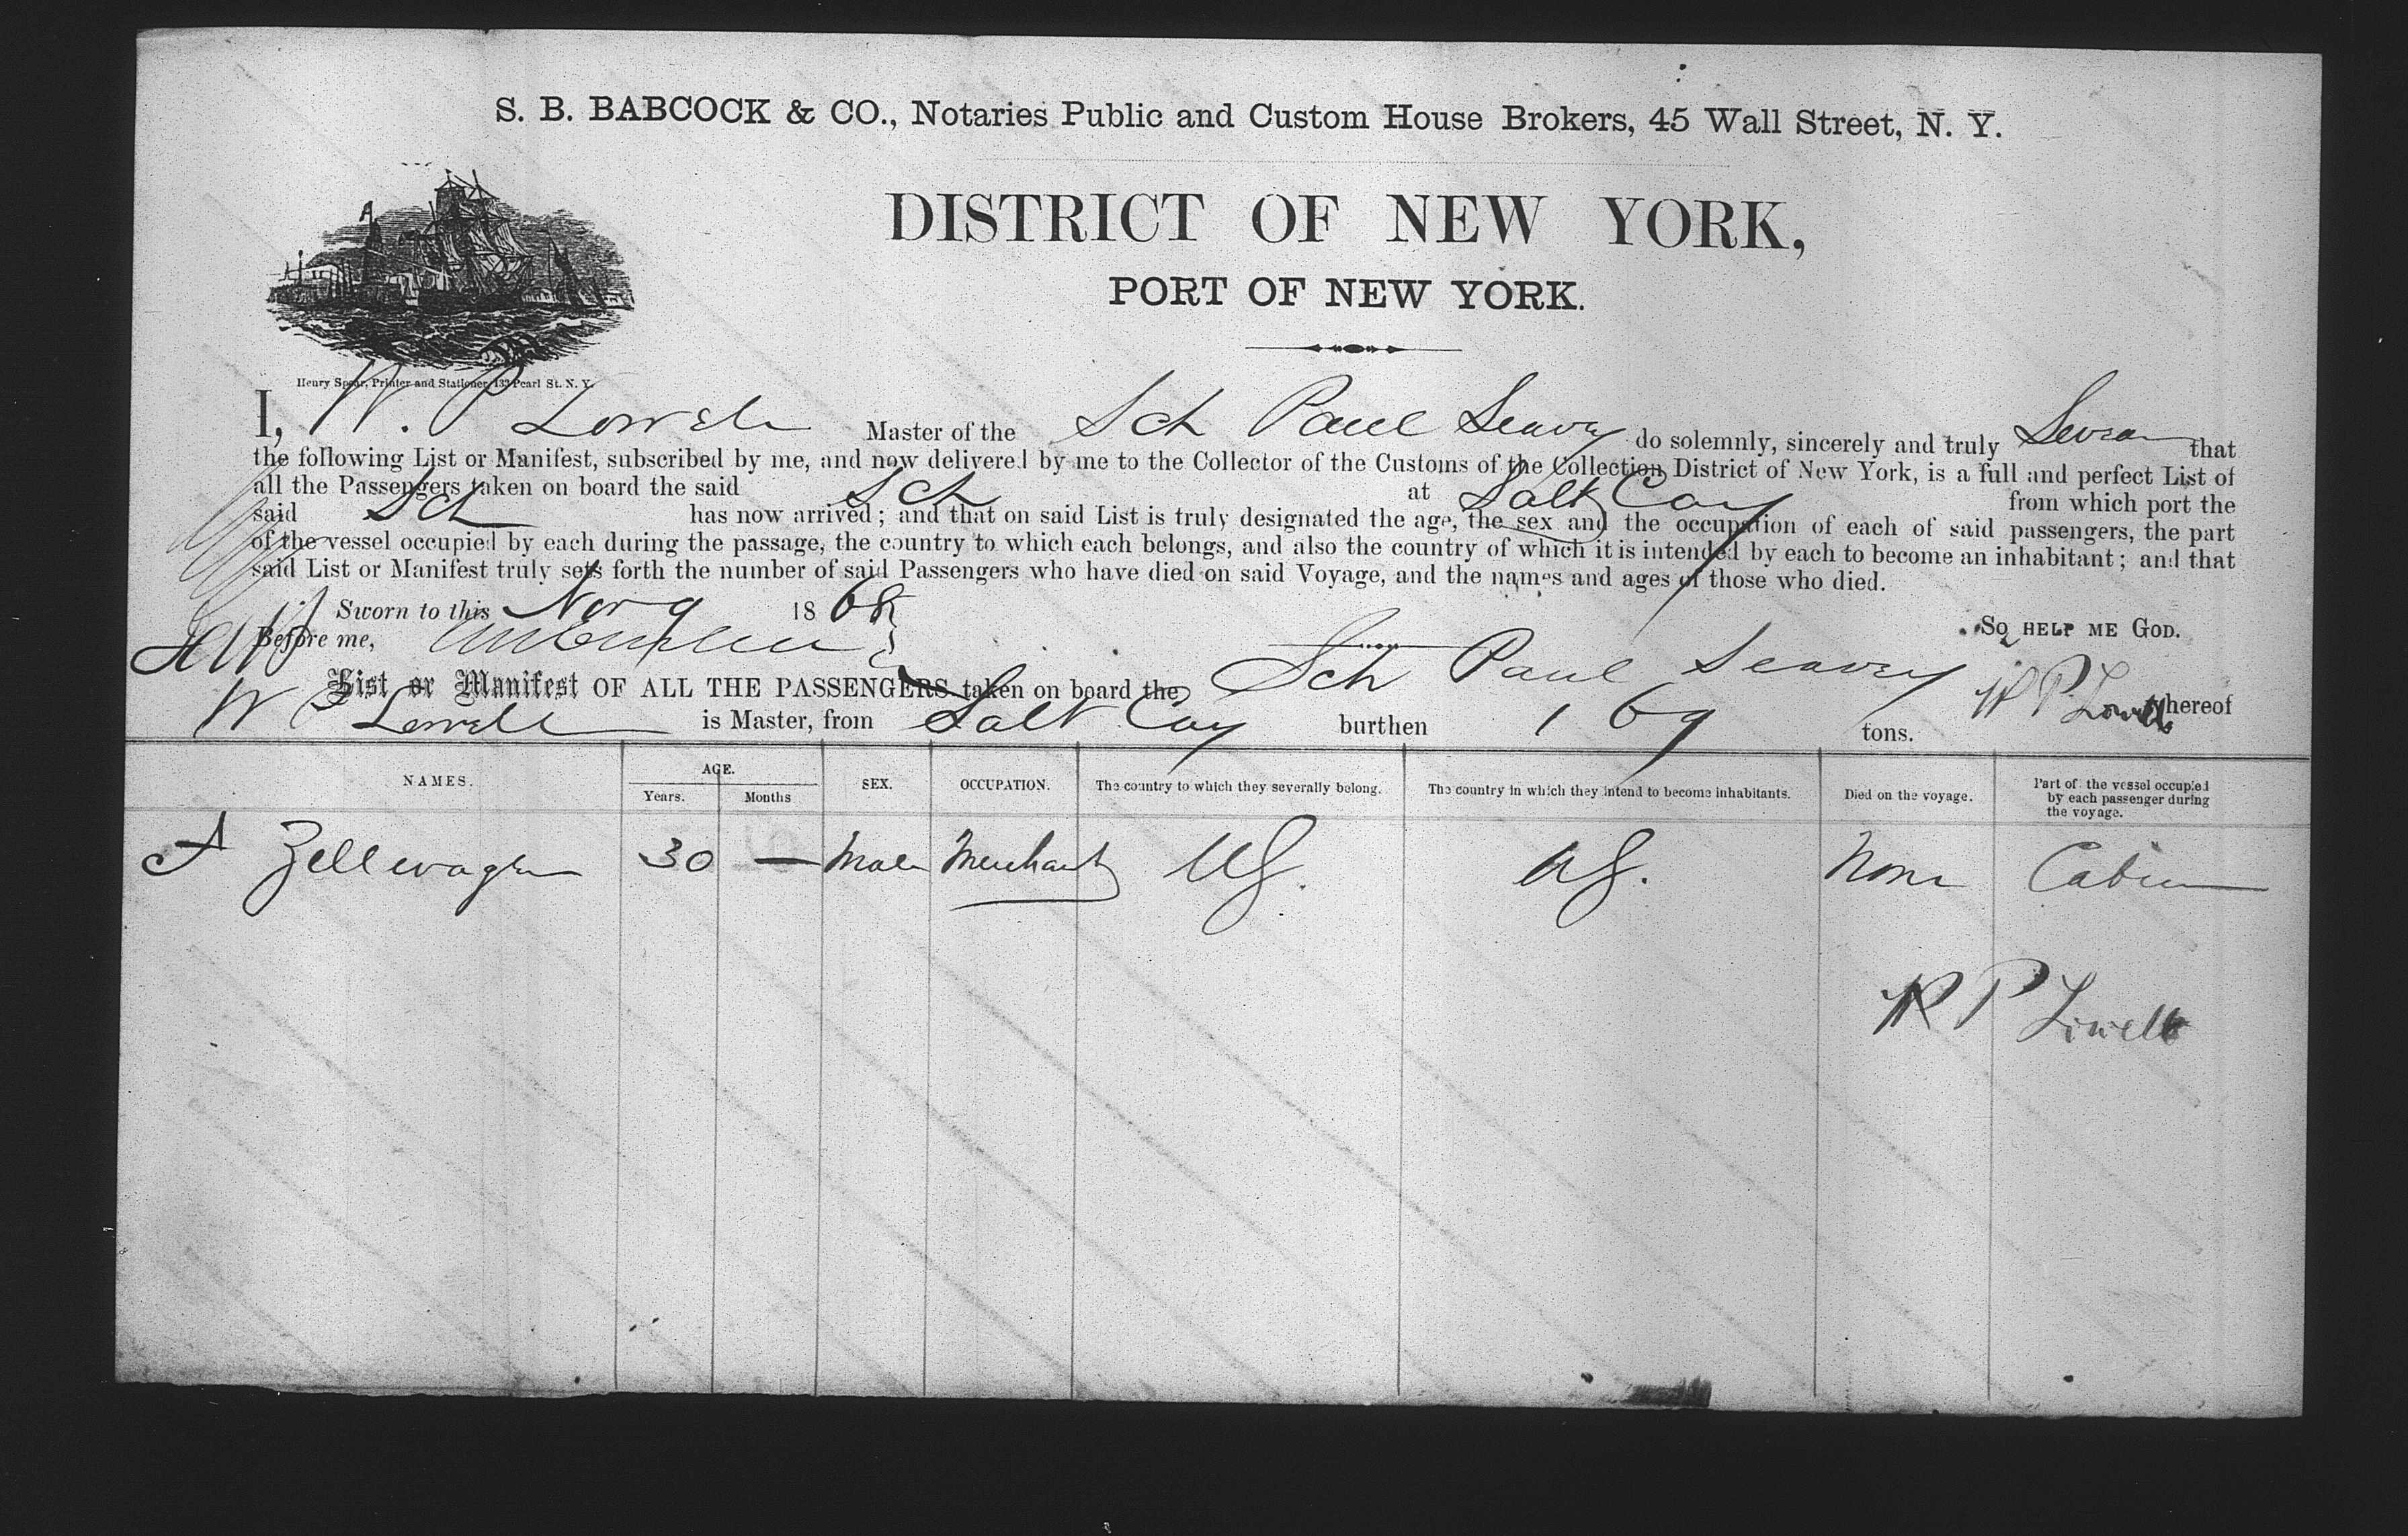 S. B. BABCOCK & CO., Notaries Public and Custom House Brokers, 45 Wall Street, N. Y.
DISTRICT OF NEW YORK,
PORT OF NEW YORK.
Henry Spear, Printer and Stationer, 133 Pearl St. N. Y.
I, W. P Lowell Master of the Sch Paul Seavey do solemnly, sincerely and truly Swear that
the following List or Manifest, subscribed by me, and now delivered by me to the Collector of the Customs of the Collection District of New York, is a full and perfect List of
all the Passengers taken on board the said Sch at Salt Cay from which port the
said Sch has now arrived; and that on said List is truly designated the age, the sex and the occupation of each of said passengers, the part
of the vessel occupied by each during the passage, the country to which each belongs, and also the country of which it is intended by each to become an inhabitant; and that
said List or Manifest truly sets forth the number of said Passengers who have died on said Voyage, and the names and ages of those who died.
Sworn to this Nov 9 1868
So HELP ME GOD.
Before me,
W P Lowell
List or Manifest OF ALL THE PASSENGERS taken on board the Sch Paul Seavey whereof
W P Lowell is Master, from Salt Cay burthen 169 tons.
NAMES. AGE. Years. Months SEX. OCCUPATION. The country to which they severally belong. The country in which they intend to become inhabitants. Died on the voyage. Part of the vessel occupied by each passenger during the voyage.
A Zellwagen 30 — Male Merchant US. US. None Cabin
W P Lowell